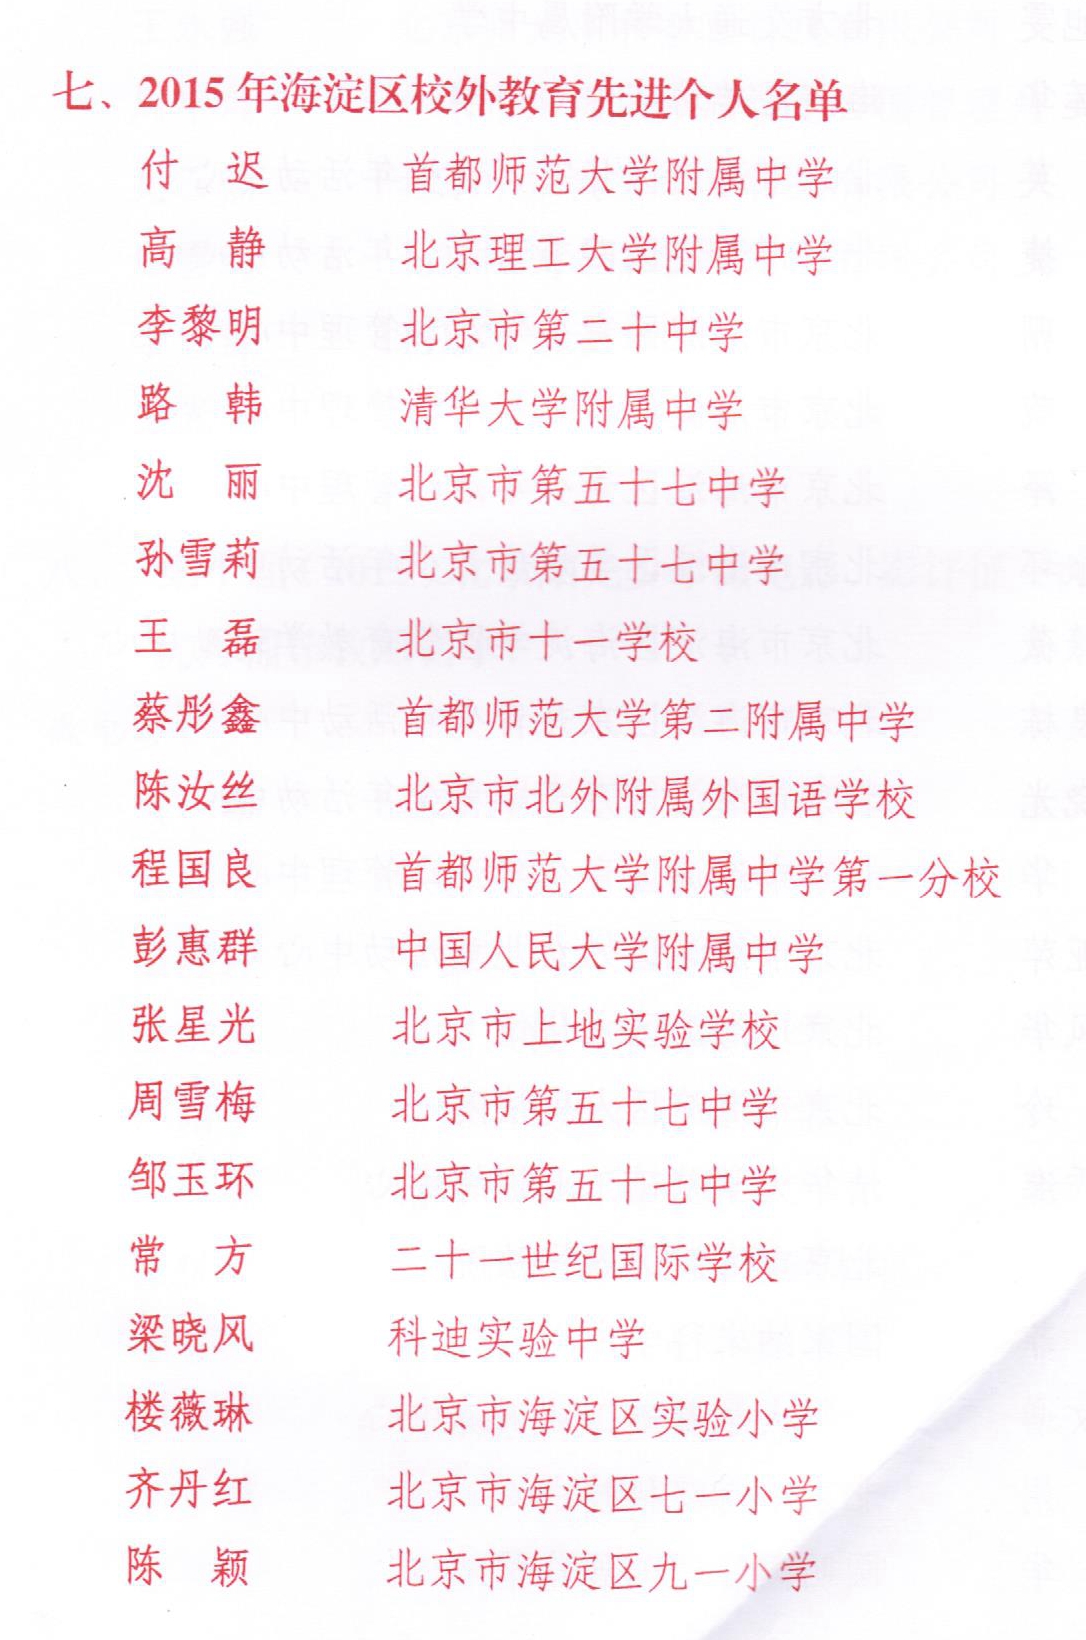 七、2015年海淀区校外教育先进个人名单
付 迟 首都师范大学附属中学
高 静 北京理工大学附属中学
李黎明 北京市第二十中学
路 韩 清华大学附属中学
沈 丽 北京市第五十七中学
孙雪莉 北京市第五十七中学
王 磊 北京市十一学校
蔡彤鑫 首都师范大学第二附属中学
陈汝丝 北京市北外附属外国语学校
程国良 首都师范大学附属中学第一分校
彭惠群 中国人民大学附属中学
张星光 北京市上地实验学校
周雪梅 北京市第五十七中学
邹玉环 北京市第五十七中学
常 方 二十一世纪国际学校
梁晓风 科迪实验中学
楼薇琳 北京市海淀区实验小学
齐丹红 北京市海淀区七一小学
陈 颖 北京市海淀区九一小学